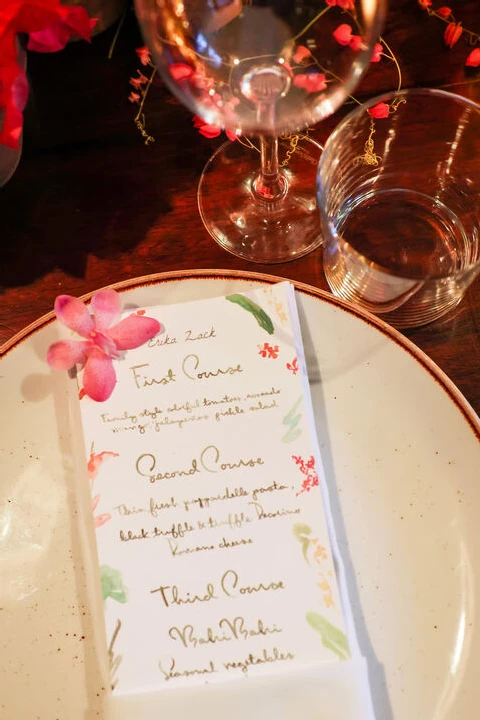 Erika Zack
First Course
Family style colorful tomatoes, avocado
mango, jalapenos, pickle salad
Second Course
Thin fresh pappardelle pasta,
black truffle & truffle Pecorino
Romano cheese
Third Course
MahiMahi
Seasonal vegetables